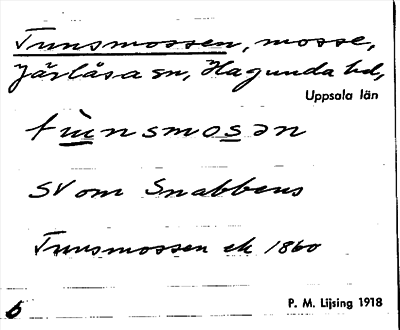 Tunsmossen, mosse,
Järlåsa sn, Hagunda hd,
Uppsala län
tùnsmosən
SV om Snabbens
Tunsmossen ek 1860
6
P. M. Lijsing 1918